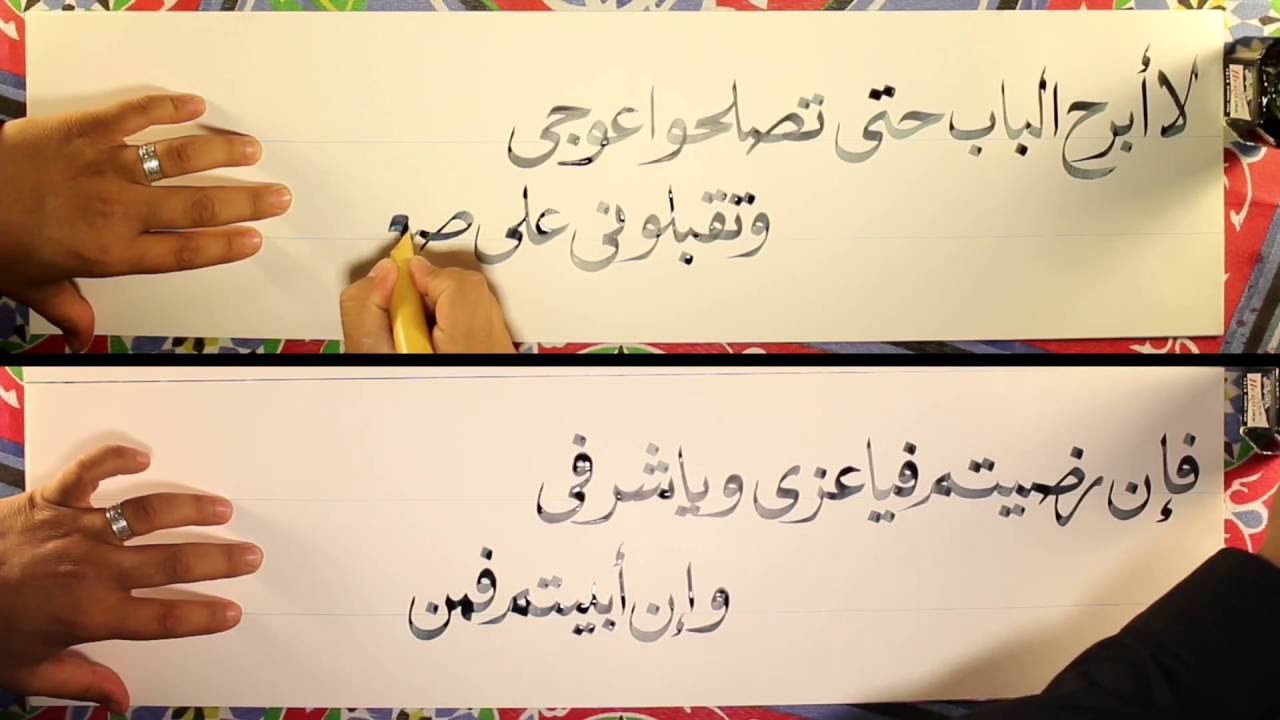 لا أبرح الباب حتى تصلحوا عوجى
وتقبلونى على
فإن رضيتم فيا عزى ويا شرفى
وإن أبيتم فمن